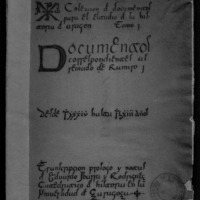 Colección de documentos
para el estudio de la his
toria de Aragón Tomo I
Documentos
correspondientes al
reinado de Ramiro I
desde
Transcripción prologo y notas
d Eduardo Ibarra y Rodriguez
Catedratico d historia en la
Universidad d Zaragoza